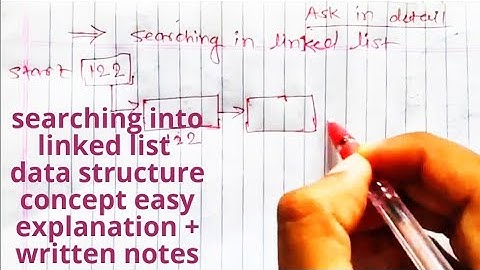 Ask in detail
→ searching in linked list
start 122
122
searching into
linked list
data structure
concept easy
explanation +
written notes